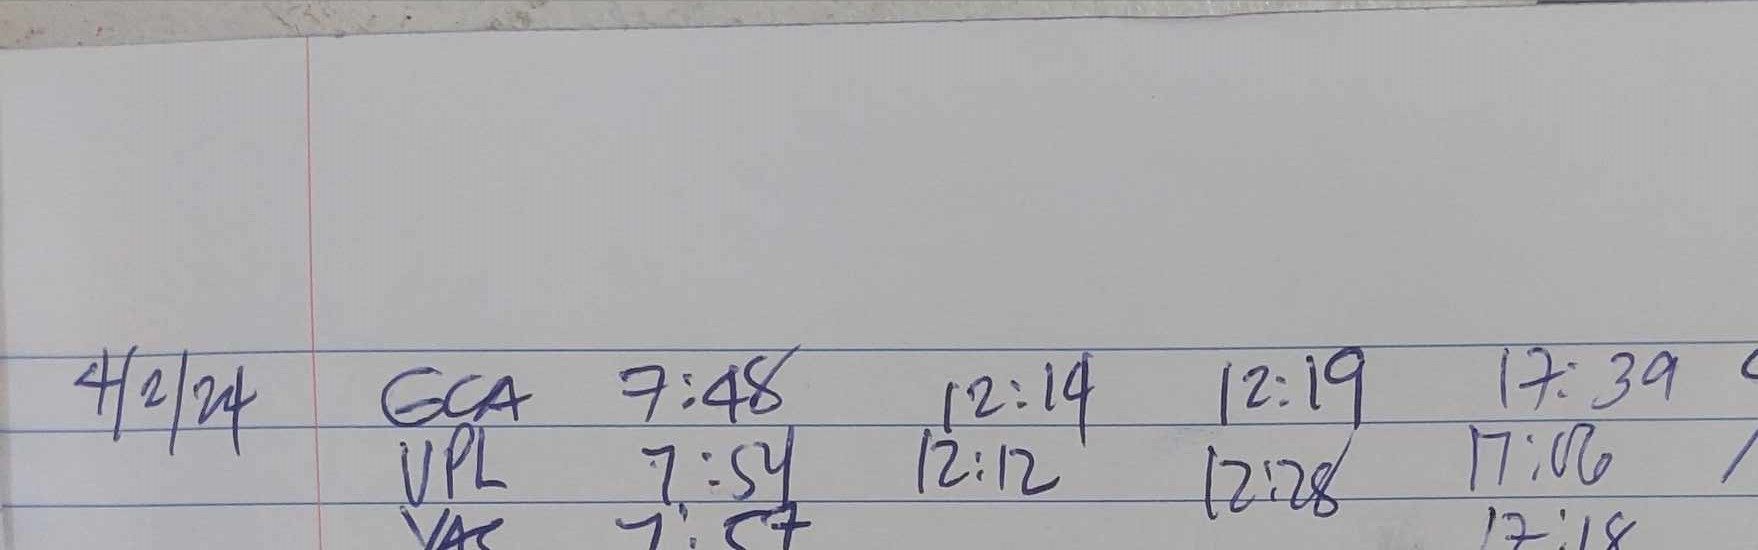 4/2/24 GCA 7:48 12:14 12:19 17:39
VPL 7:54 12:12 12:28 17:06
YAS 7:57 17:18